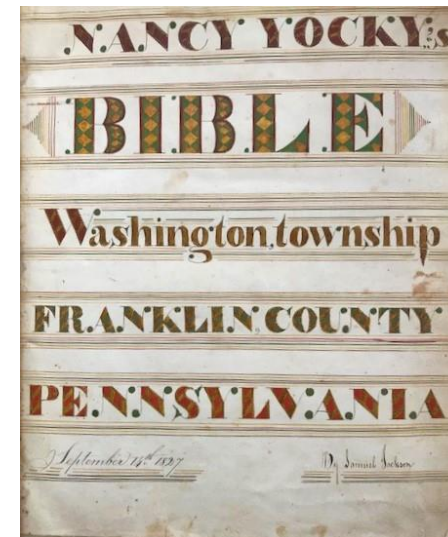 NANCY YOCKY's
BIBLE
Washington, township
FRANKLIN, COUNTY
PENNSYLVANIA
September 14th 1827 By Samuel Jackson